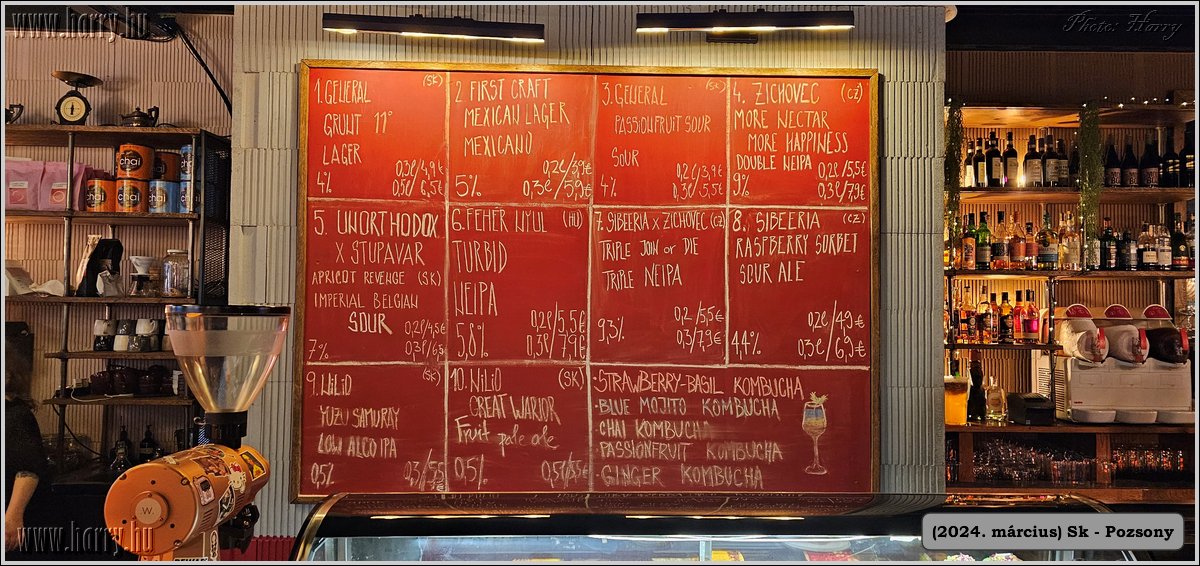 www.horry.hu
Photo: Horry
1. GENERAL (SK)
GRUNT 11°
LAGER
0,3ℓ/4,9€
4% 0,5ℓ/6,5€
2 FIRST CRAFT
MEXICAN LAGER
MEXICANO
0,2ℓ/3,9€
5% 0,3ℓ/5,9€
3. GENERAL (SK)
PASSIONFRUIT SOUR
SOUR
0,2ℓ/3,9€
4% 0,3ℓ/5,5€
4. ZICHOVEC (CZ)
MORE NECTAR
MORE HAPPINESS
DOUBLE NEIPA 0,2ℓ/5,5€
9% 0,3ℓ/7,9€
5. UNORTHODOX
X STUPAVAR
APRICOT REVENGE (SK)
IMPERIAL BELGIAN
SOUR 0,2ℓ/4,5€
7% 0,3ℓ/6,5
6. FEHÉR NYÚL (HU)
TURBID
NEIPA
0,2ℓ/5,5€
5,8% 0,3ℓ/7,9€
7. SIBEERIA X ZICHOVEC (CZ)
TRIPLE JOIN or DIE
TRIPLE NEIPA
0,2/5,5€
9,3% 0,3/7,9€
8. SIBEERIA (CZ)
RASPBERRY SORBET
SOUR ALE
0,2ℓ/4,9€
4,4% 0,3ℓ/6,9€
9. NILIO (SK)
YUZU SAMURAY
LOW ALCO IPA
0,5% 0,3/5,5
10. NILIO (SK)
GREAT WARIOR
Fruit pale ale
0,5% 0,5ℓ/5,5€
·STRAWBERRY-BASIL KOMBUCHA
·BLUE MOJITO KOMBUCHA
·CHAI KOMBUCHA
·PASSIONFRUIT KOMBUCHA
·GINGER KOMBUCHA
chai
chai
chai
.W.
www.horry.hu
(2024. március) Sk - Pozsony